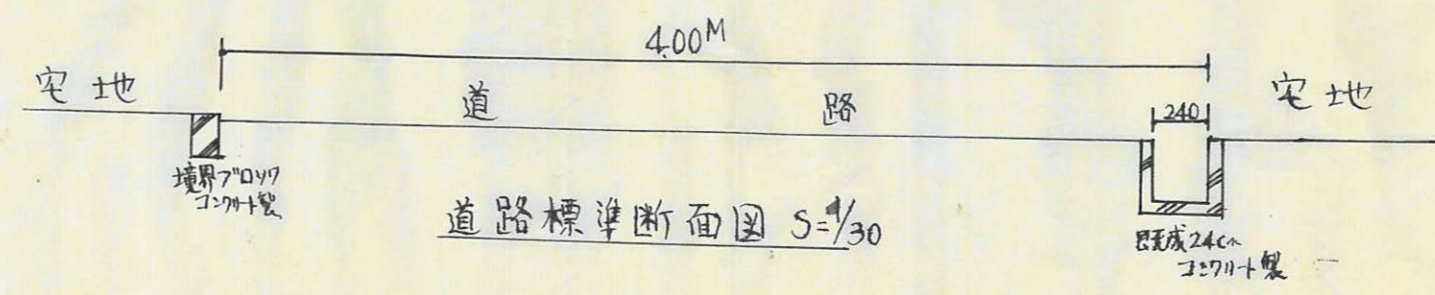 4.00M
宅地
道路
240
宅地
境界ブロック
コンクリート製
道路標準断面図 S=1/30
既成24cm
コンクリート製